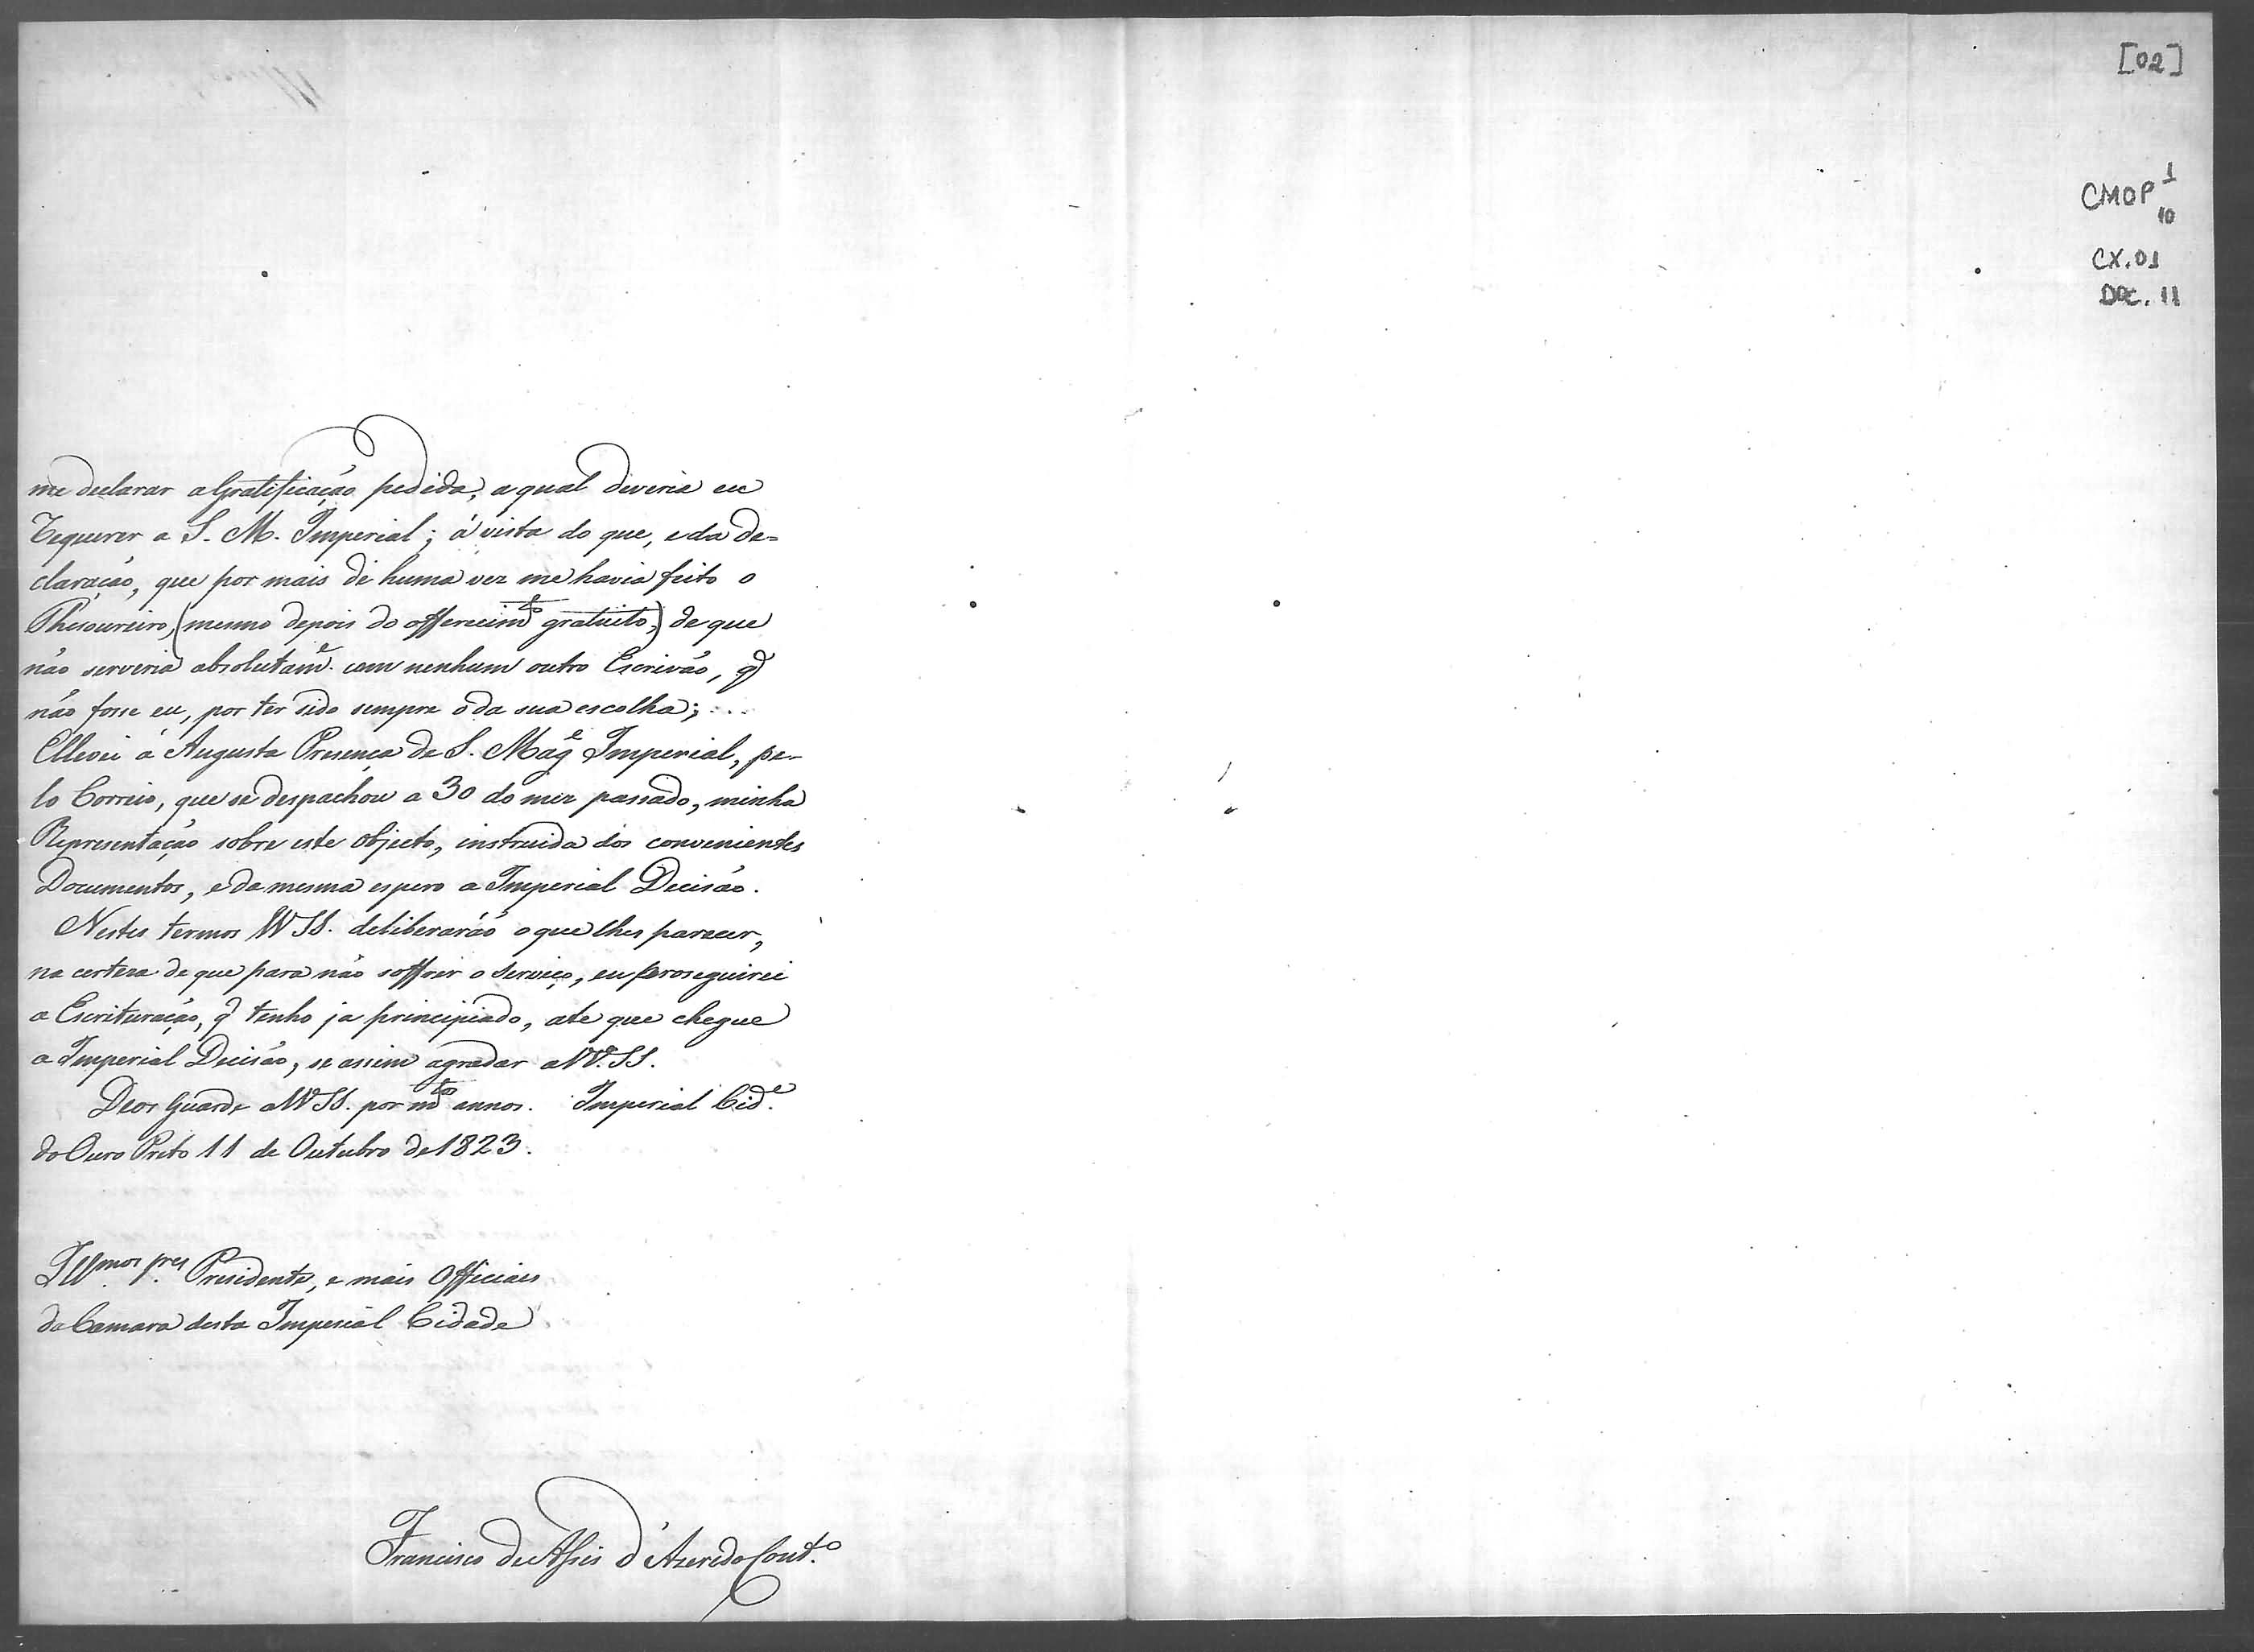 [02]
CMOP 1
10
CX.01
DOC. 11
me declarar a Gratificação pedida, a qual diveria eu
requerer a S. M. Imperial; á vista do que, e da de=
claração, que por mais de huma vez me havia feito o
Thesoureiro, (mesmo depois do offerecimto gratuito,) de que
não serviria absolutame. com nenhum outro Escrivão, q
não fosse eu, por ter sido sempre o da sua escolha; ...
Ellevei á Augusta Presença de S. Mage Imperial, pe-
lo Correio, que se despachou a 30 do mez passado, minha
Representação sobre este objecto, instruida dos convenientes
Documentos, e da mesma espero a Imperial Decisão.
Nestes termos VV SS. deliberaráõ o que lhes parecer,
na certeza de que para não soffrer o Serviço, eu proseguirei
a Escrituração, q tenho ja principiado, ate que chegue
a Imperial Decisão, se assim agradar a VV. SS.
Deos Guarde a VV SS. por mtos annos. Imperial Cide.
do Ouro Preto 11 de Outubro de 1823.
Illmos Sres Presidente, e mais Officiaes
da Camara desta Imperial Cidade
Francisco de Assis d'Azeredo Couto.